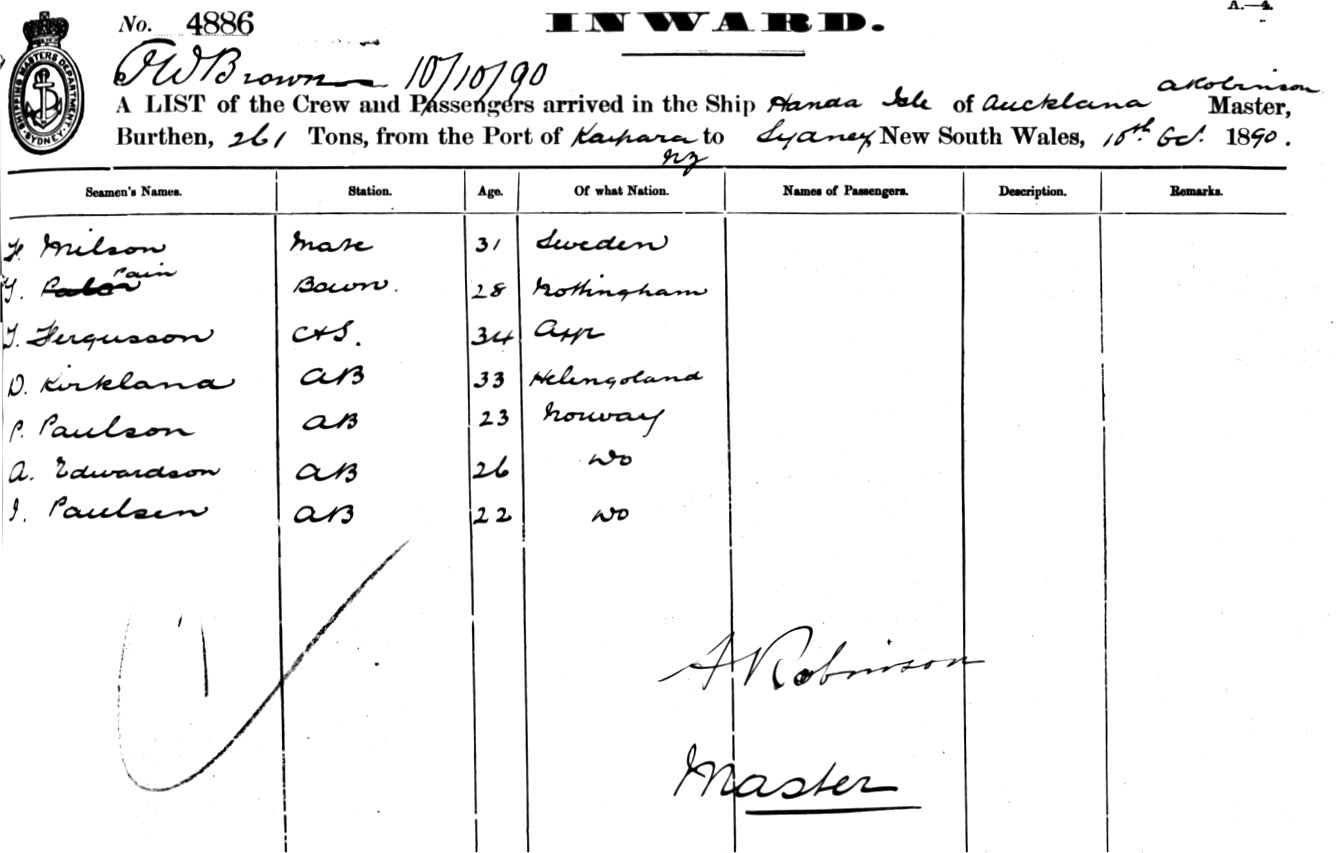 A.—4.
No. 4886 INWARD.
SHIPPING MASTERS DEPARTMENT SYDNEY
FW Brown 10/10/90
A LIST of the Crew and Passengers arrived in the Ship Handa Isle of Auckland A Robinson Master,
Burthen, 261 Tons, from the Port of Kaipara NZ to Sydney New South Wales, 10th Oct. 1890.
Seamen's Names. Station. Age. Of what Nation. Names of Passengers. Description. Remarks.
F. Milson Mate 31 Sweden
Y. Pain Bosun. 28 Nottingham
T. Fergusson C&S. 34 Ayr
D. Kirkland AB 33 Helengoland
P. Paulson AB 23 Norway
A. Edwardson AB 26 Do
I. Paulsen AB 22 Do
A Robinson
Master